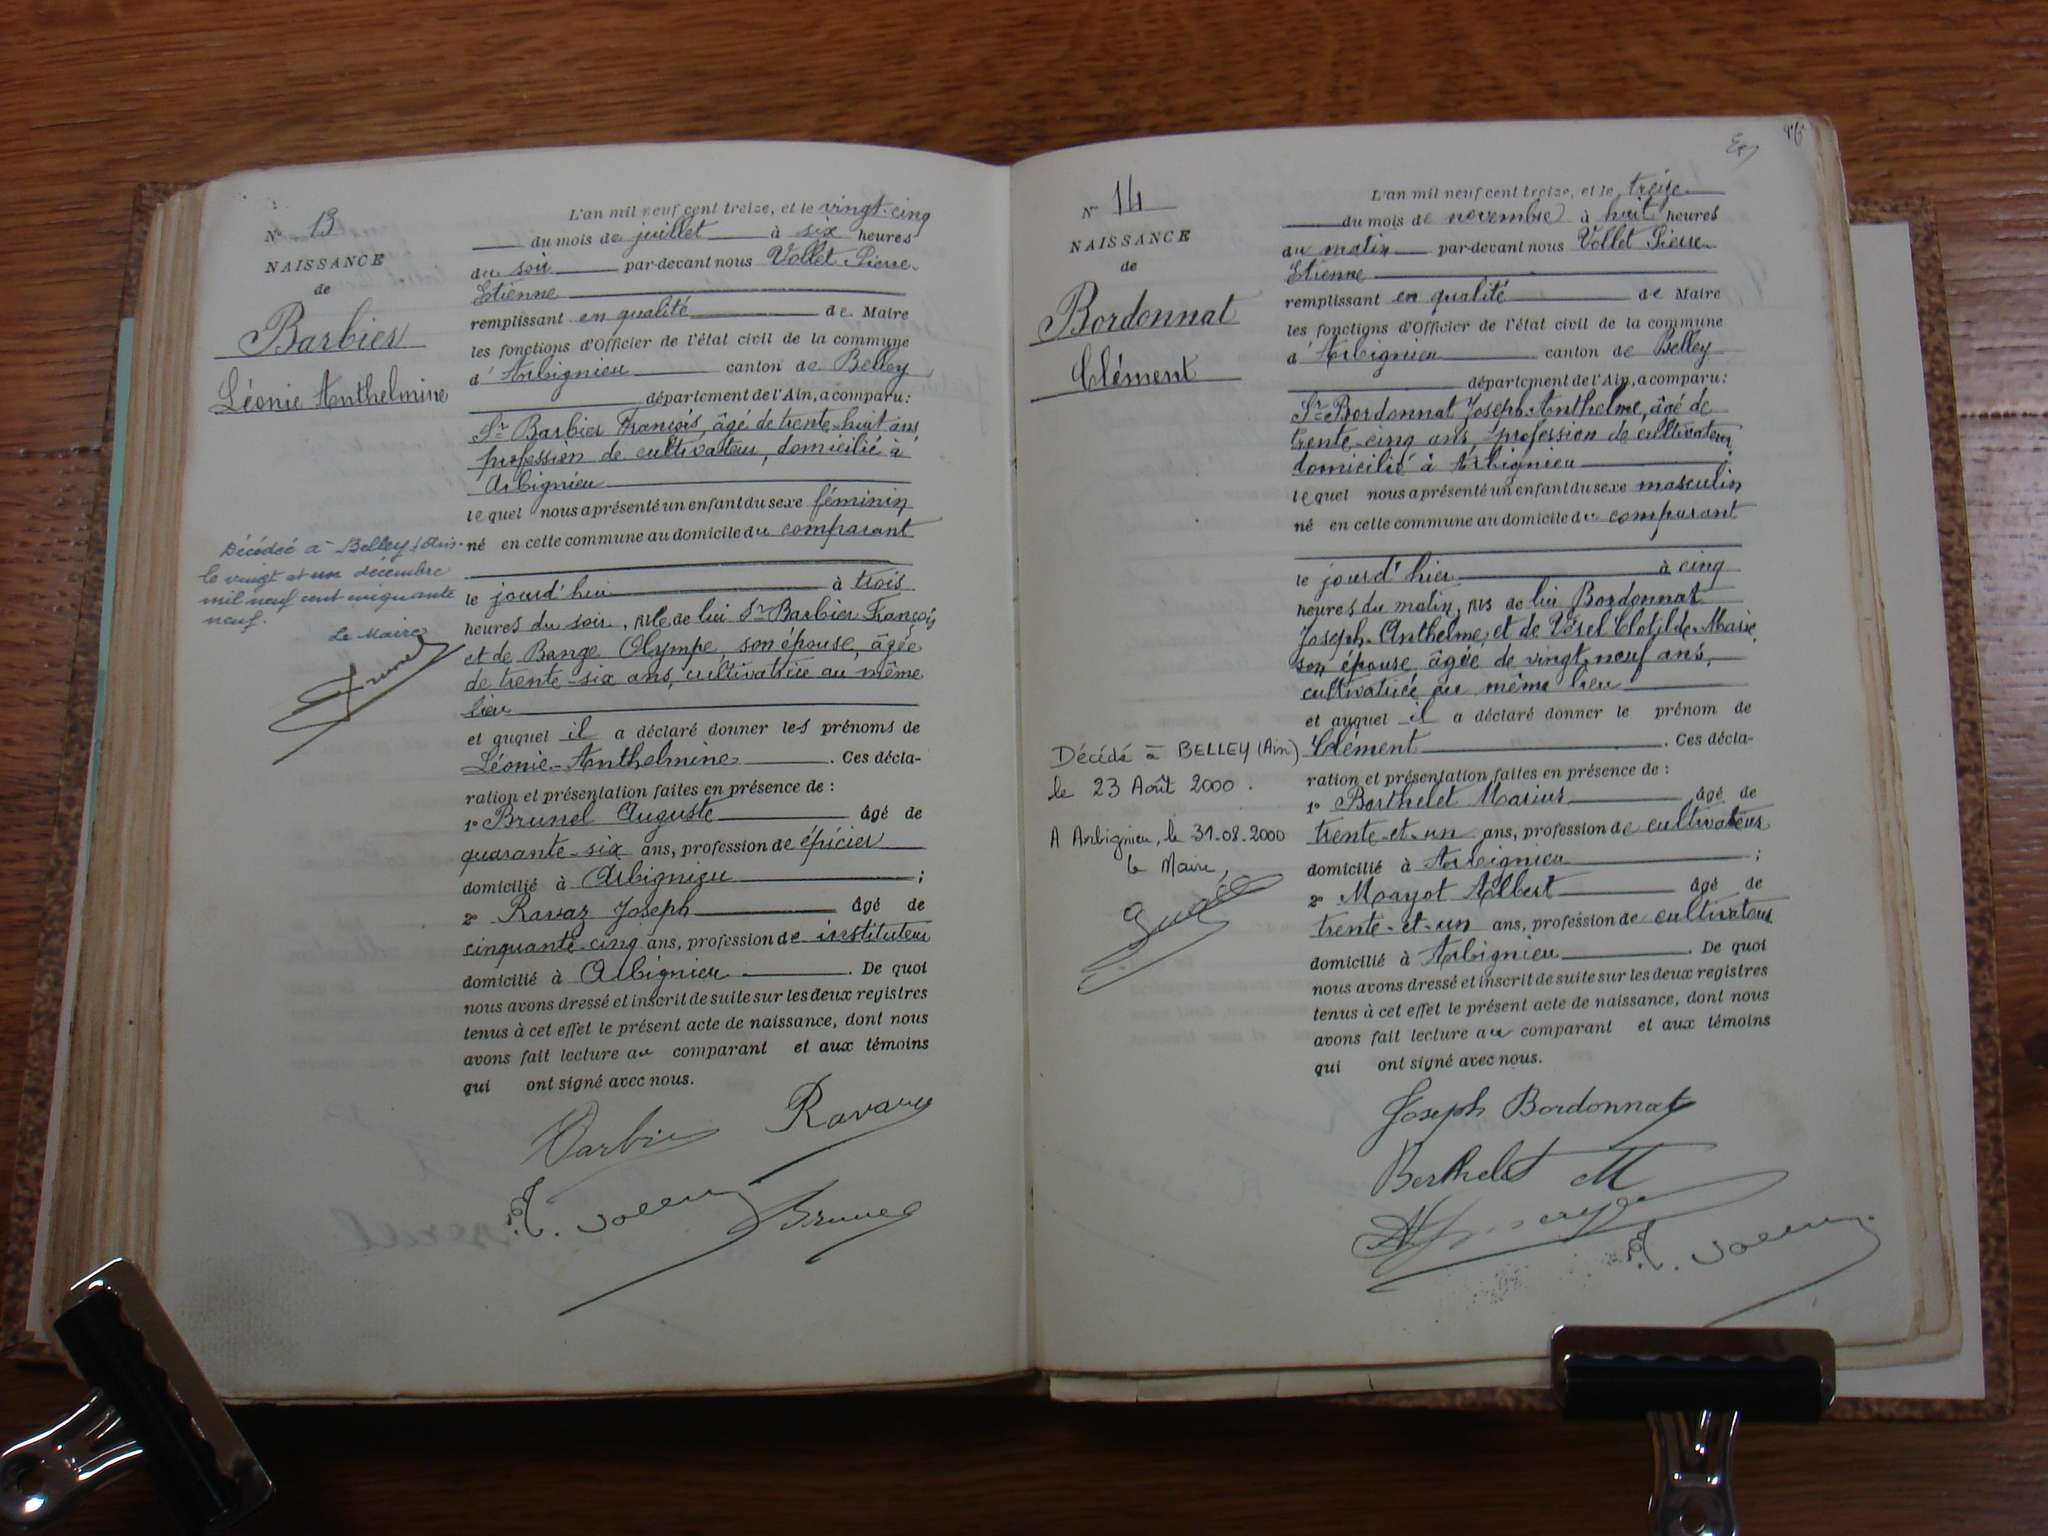 N° 13
NAISSANCE
de
Barbier
Léonie Anthelmine
Décédée à Belley (Ain)
le vingt et un décembre
mil neuf cent cinquante
neuf.
Le Maire
L'an mil neuf cent treize, et le vingt-cinq
du mois de juillet à six heures
du soir par-devant nous Vollet Pierre
Etienne
remplissant en qualité de Maire
les fonctions d'Officier de l'état civil de la commune
d'Arbignieu canton de Belley
département de l'Ain, a comparu :
Sr Barbier François, âgé de trente-huit ans
profession de cultivateur, domicilié à
Arbignieu
lequel nous a présenté un enfant du sexe féminin
né en cette commune au domicile du comparant
le jourd'hui à trois
heures du soir, née de lui Sr Barbier François,
et de Bange Olympe, son épouse, âgée
de trente-six ans, cultivatrice au même
lieu
et auquel il a déclaré donner les prénoms de
Léonie-Anthelmine. Ces décla-
ration et présentation faites en présence de :
1° Brunel Auguste âgé de
quarante-six ans, profession de épicier
domicilié à Arbignieu ;
2° Ravaz Joseph âgé de
cinquante-cinq ans, profession de instituteur
domicilié à Arbignieu. De quoi
nous avons dressé et inscrit de suite sur les deux registres
tenus à cet effet le présent acte de naissance, dont nous
avons fait lecture au comparant et aux témoins
qui ont signé avec nous.
Barbier
Brunel
N° 14
NAISSANCE
de
Bordonnat
Clément
Décédé à BELLEY (Ain)
le 23 Août 2000.
A Arbignieu, le 31.08.2000
Le Maire,
L'an mil neuf cent treize, et le treize
du mois de novembre à huit heures
du matin par-devant nous Vollet Pierre
Etienne
remplissant en qualité de Maire
les fonctions d'Officier de l'état civil de la commune
d'Arbignieu canton de Belley
département de l'Ain, a comparu :
Sr Bordonnat Joseph-Anthelme, âgé de
trente-cinq ans, profession de cultivateur
domicilié à Arbignieu ;
lequel nous a présenté un enfant du sexe masculin
né en cette commune au domicile du comparant
le jourd'hier à cinq
heures du matin, né de lui Bordonnat
Joseph-Anthelme, et de Vérel Clotilde-Marie
son épouse âgée de vingt-neuf ans,
cultivatrice au même lieu
et auquel il a déclaré donner le prénom de
Clément. Ces décla-
ration et présentation faites en présence de :
1° Berthelet Marius âgé de
trente-et-un ans, profession de cultivateur
domicilié à Arbignieu ;
2° Mayot Albert âgé de
trente-et-un ans, profession de cultivateur
domicilié à Arbignieu. De quoi
nous avons dressé et inscrit de suite sur les deux registres
tenus à cet effet le présent acte de naissance, dont nous
avons fait lecture au comparant et aux témoins
qui ont signé avec nous.
Joseph Bordonnat
Berthelet M